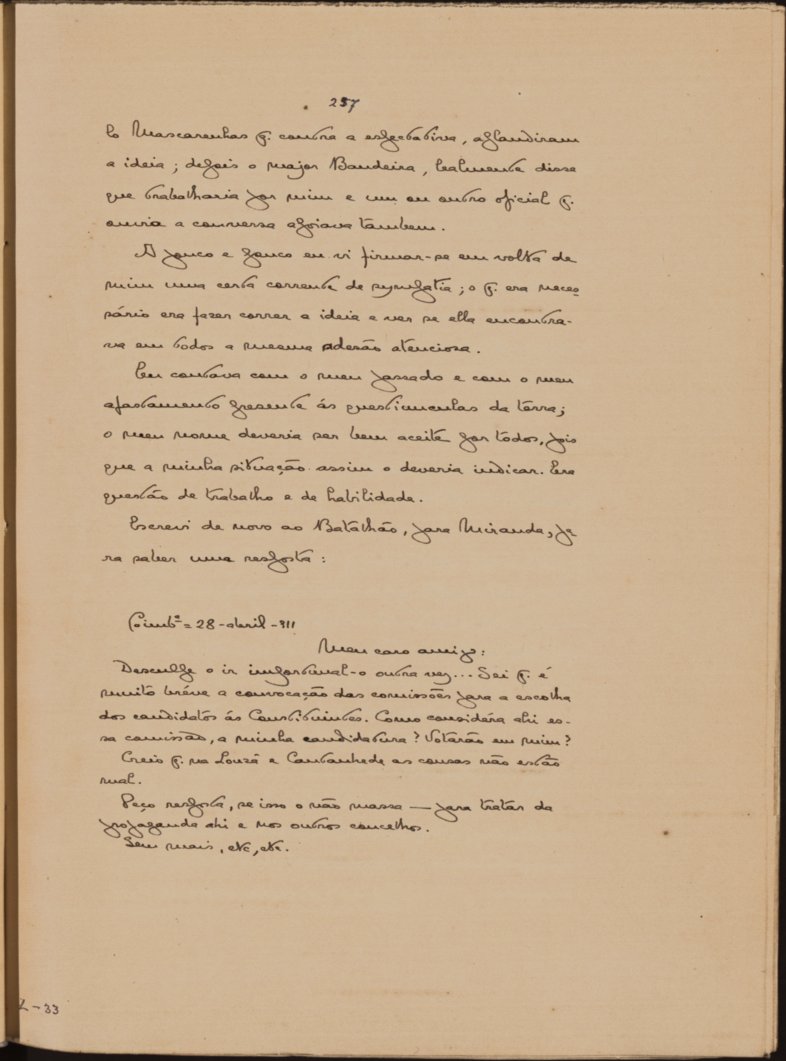 257
lo Mascarenhas q. contra a espectativa, aplaudiram
a ideia; depois o major Bandeira, lealmente disse
que trabalharia por mim e um ou outro oficial q.
ouvia a conversa apoiava tambem.
A pouco e pouco eu vi firmar-se em volta de
mim uma certa corrente de sympatia; o q. era neces-
sário era fazer correr a ideia e ver se ella encontra-
va em todos a mesma adesão atenciosa.
Eu contava com o meu passado e com o meu
afastamento presente ás questiunculas da terra;
o meu nome deveria ser bem aceite por todos, pois
que a minha situação assim o deveria indicar. Era
questão de trabalho e de habilidade.
Escrevi de novo ao Batalhão, para Miranda, pa-
ra saber uma resposta:
Coimbª = 28-abril-911
Meu caro amigo:
Desculpe o ir importunal-o outra vez... Sei q. é
muito bréve a convocação das comissões para a escolha
dos candidatos ás Constituintes. Como considéra ahi es-
sa comissão, a minha candidatura? Votarão em mim?
Creio q. na Louzã e Cantanhede as cousas não estão
mal.
Peço resposta, se isso o não massa — para tratar da
propaganda ahi e nos outros concelhos.
Sem mais, etc, etc.
L-33